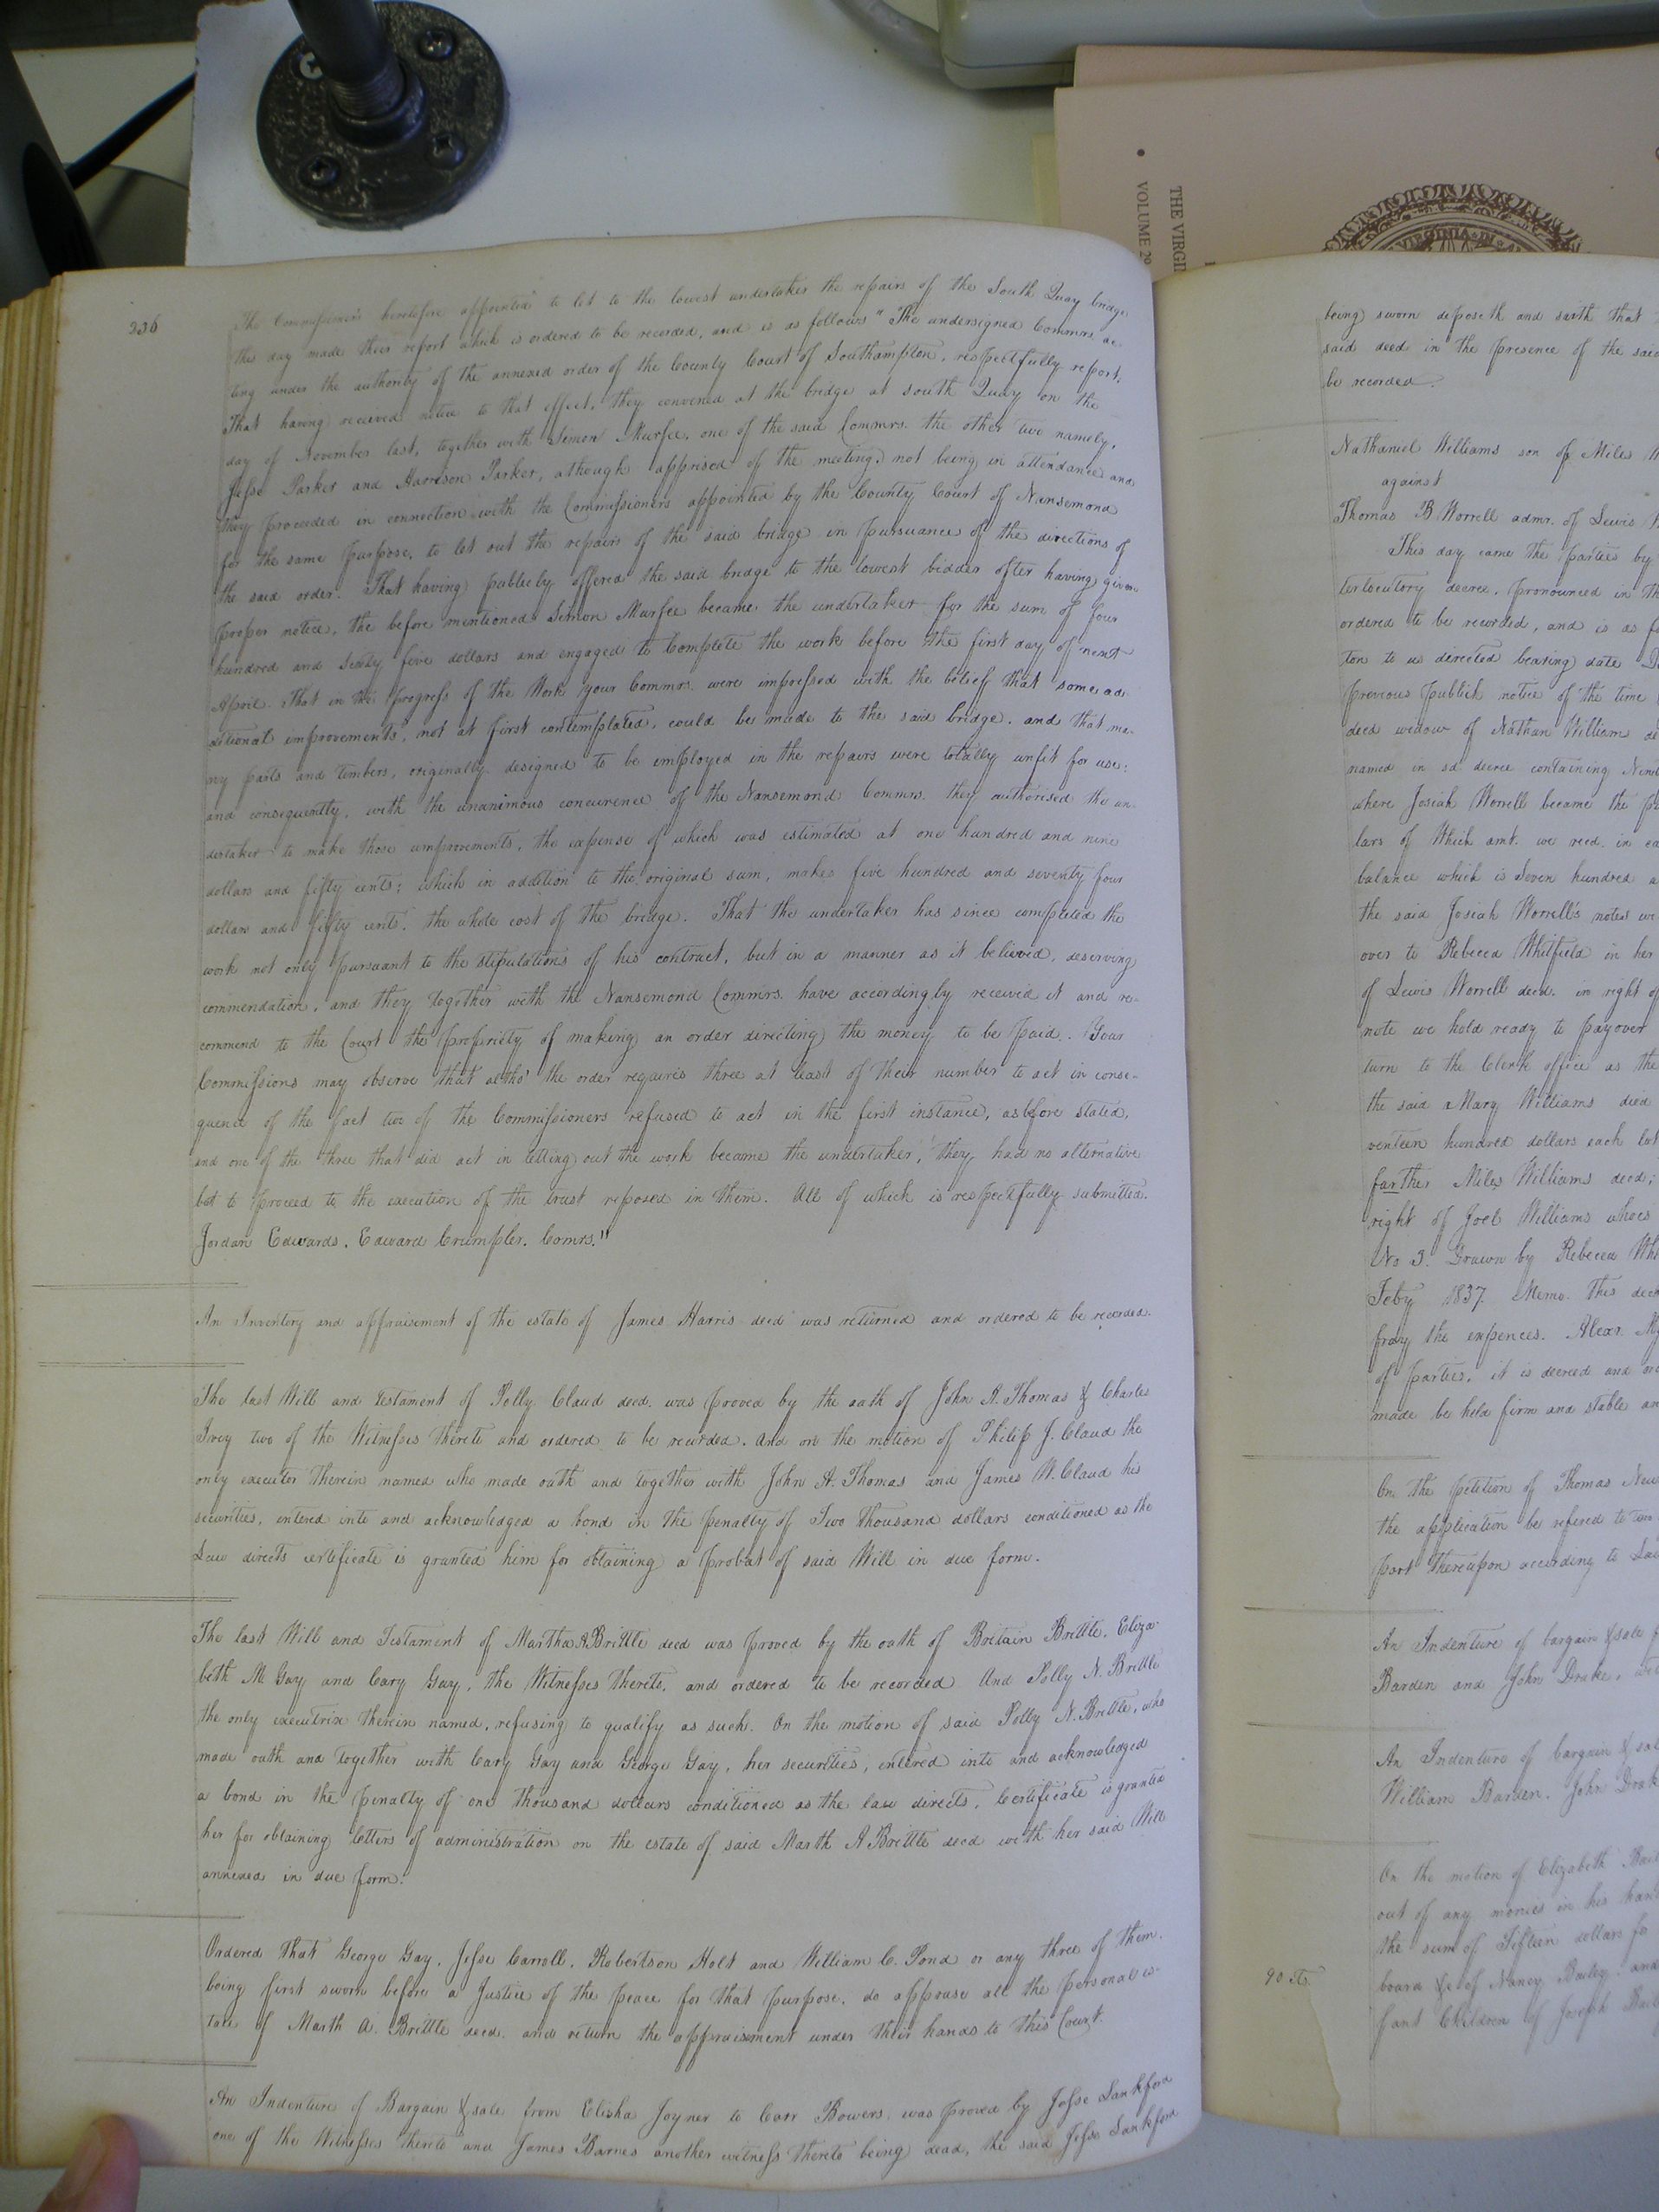 THE VIRGI
VOLUME 29
VIRGINIA IN
236
The Commissioners heretofore appointed to let to the lowest undertaker the repairs of the South Quay bridge
this day made their report which is ordered to be recorded, and is as follows "The undersigned Commrs. ac
ting under the authority of the annexed order of the County Court of Southampton, respectfully report,
That having received notice to that effect, they convened at the bridge at South Quay on the
day of November last, together with Simon Murfee, one of the said Commrs. the other two namely,
Jesse Parker and Harrison Parker, although apprised of the meeting, not being in attendance and
they proceeded in connection with the Commissioners appointed by the County Court of Nansemond
for the same purpose, to let out the repairs of the said bridge in pursuance of the directions of
the said order. That having publicly offered the said bridge to the lowest bidder after having given
proper notice, the before mentioned Simon Murfee became the undertaker for the sum of four
hundred and sixty five dollars and engaged to complete the work before the first day of next
April. That in the progress of the Work your Commrs. were impressed with the belief that some ad
ditional improvements, not at first contemplated, could be made to the said bridge, and that ma-
ny parts and timbers, originally designed to be employed in the repairs were totally unfit for use:
and consequently, with the unanimous concurence of the Nansemond Commrs. they authorised the un-
dertaker to make those improvements, the expense of which was estimated at one hundred and nine
dollars and fifty cents; which in addition to the original sum, makes five hundred and seventy four
dollars and fifty cents, the whole cost of the bridge. That the undertaker has since completed the
work not only pursuant to the stipulations of his contract, but in a manner as it believed, deserving
commendation, and they together with the Nansemond Commrs. have accordingly received it and re-
commend to the Court the propriety of making an order directing the money to be paid. Your
Commissions may observe that altho' the order requires three at least of their number to act in conse-
quence of the fact two of the Commissioners refused to act in the first instance, as before stated,
and one of the three that did act in letting out the work became the undertaker, they had no alternative
but to proceed to the execution of the trust reposed in them. All of which is respectfully submitted.
Jordan Edwards, Edward Crumpler. Comrs."
An Inventory and appraisement of the estate of James Harris decd was returned and ordered to be recorded.
The last Will and testament of Polly Claud decd. was proved by the oath of John A. Thomas & Charles
Ivey two of the Witnesses thereto and ordered to be recorded. And on the motion of Philip J. Claud the
only executor therein named who made oath and together with John A. Thomas and James W. Claud his
securities, entered into and acknowledged a bond in the penalty of Two thousand dollars conditioned as the
Law directs certificate is granted him for obtaining a probat of said Will in due form.
The last Will and Testament of Martha A Brittle decd was proved by the oath of Britain Brittle, Eliza-
beth M Gay and Cary Gay, the Witnesses thereto, and ordered to be recorded And Polly N. Brittle
the only executrix therein named, refusing to qualify as such. On the motion of said Polly N. Brittle, who
made oath and together with Cary Gay and George Gay, her securities, entered into and acknowledged
a bond in the penalty of one thousand dollars conditioned as the law directs, Certificate is granted
her for obtaining letters of administration on the estate of said Marth A Brittle decd with her said Will
annexed in due form.
Ordered that George Gay, Jesse Carroll, Robertson Holt and William C. Pond or any three of them
being first sworn before a Justice of the peace for that purpose, do appraise all the personal es-
tate of Marth A. Brittle decd. and return the appraisment under their hands to this Court.
An Indenture of Bargain & sale from Elisha Joyner to Carr Bowers was proved by Jesse Lankford
one of the Witnesses thereto and James Barnes another witness thereto being dead, the said Jesse Lankford
being sworn deposeth and saith that
said deed in the presence of the said
be recorded.
Nathaniel Williams son of Miles W
against
Thomas B Worrell admr. of Lewis W
This day came the parties by
terlocutory decree, pronounced in th
ordered to be recorded, and is as fo
ton to us directed bearing date D
previous publick notice of the time
decd widow of Nathan William de
named in sd decree containing Nine
where Josiah Worrell became the pu
lars of which amt. we recd. in ca
balance which is Seven hundred a
the said Josiah Worrell's notes we
over to Rebecca Whitfield in her
of Lewis Worrell decd. in right of
note we hold ready to pay over
turn to the Clerk office as the
the said Mary Williams died
venteen hundred dollars each lot
farther Miles Williams decd;
right of Joel Williams whoes
No 3. Drawn by Rebecca Whi
Feby 1837. Memo. This dec
fray the expences. Alexr. My
of parties, it is decreed and or
made be held firm and stable an
On the petition of Thomas New
the application be refered to two
port thereupon according to Law
An Indenture of bargain & sale f
Barden and John Drake, wit
An Indenture of bargain & sal
William Barden, John Drak
On the motion of Elizabeth Bai
out of any monies in his han
the sum of Fifteen dollars fo
90 cts.
board &c of Nancy Bailey and
fant Children of Joseph Bail